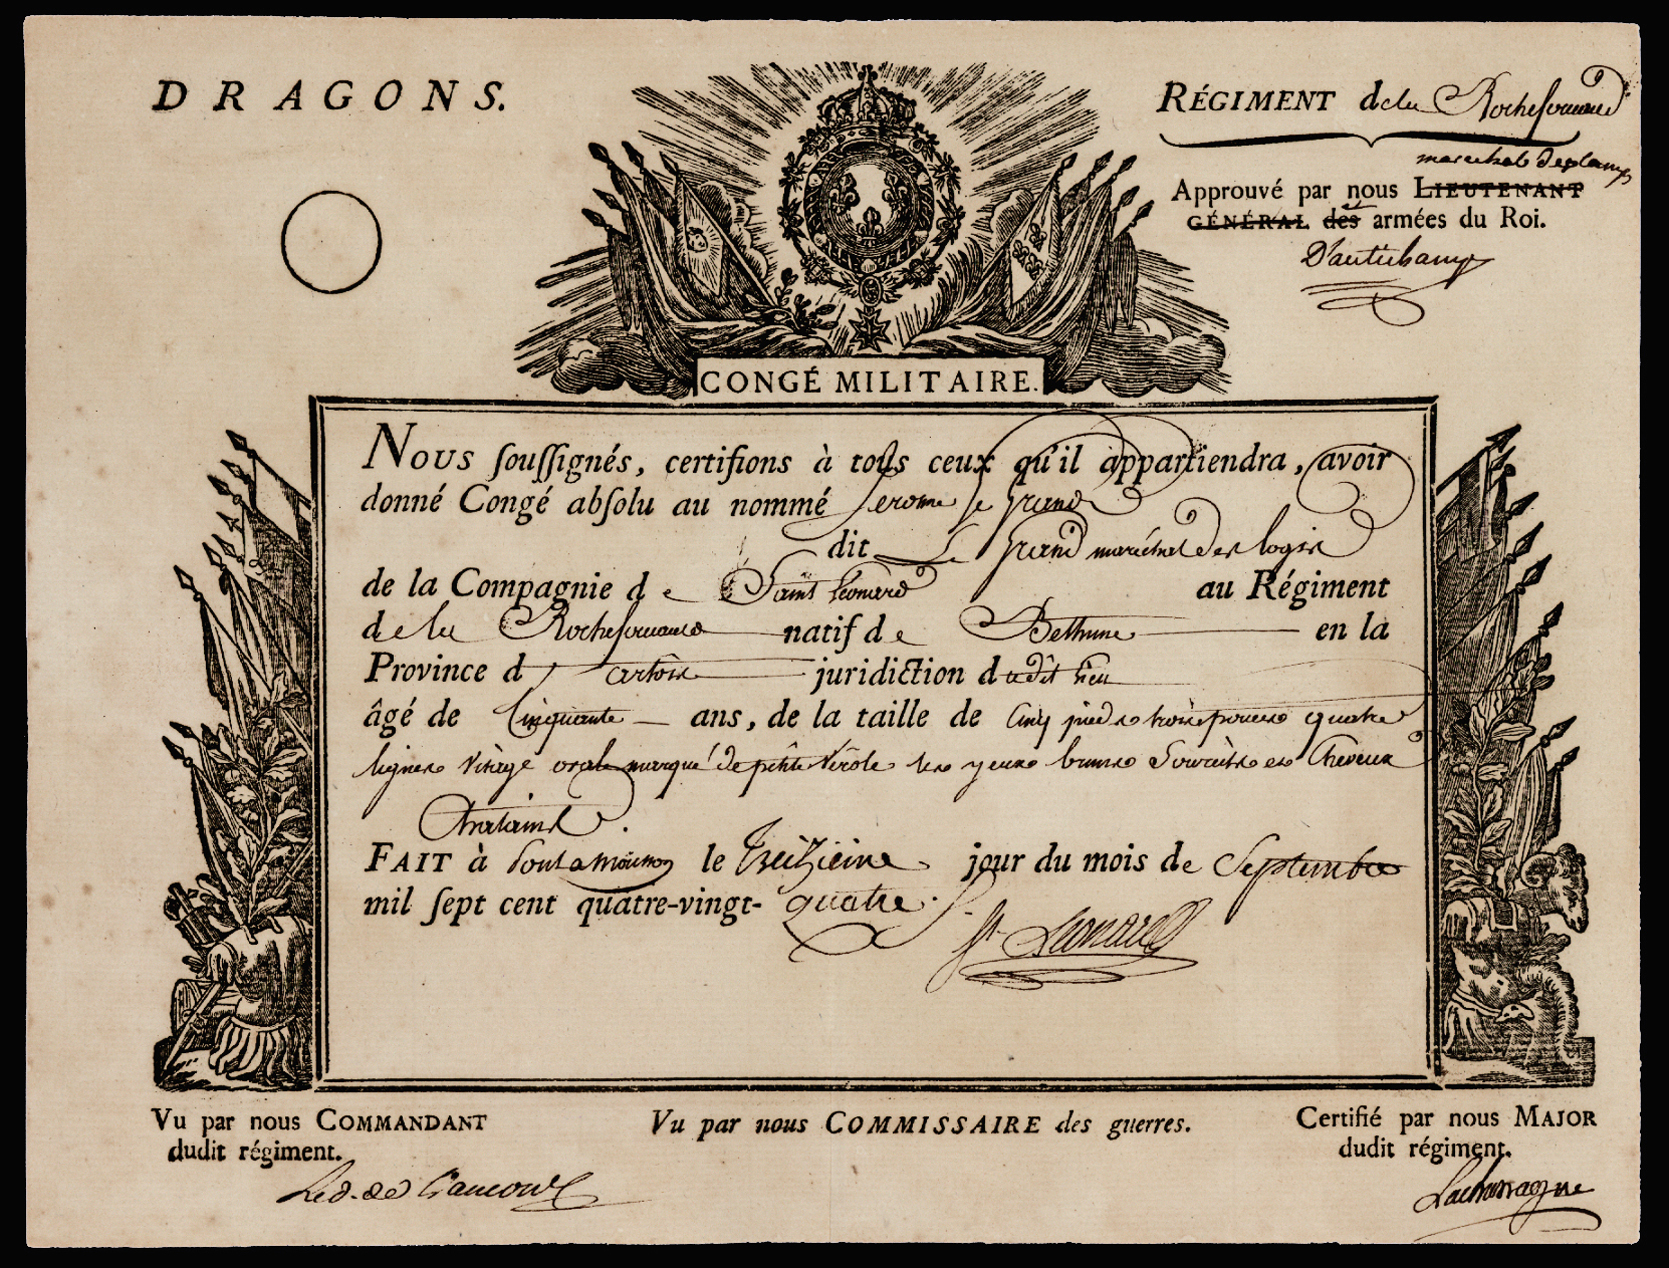 DRAGONS.
RÉGIMENT dela Rochefoucauld
marechal de camp
Approuvé par nous LIEUTENANT
GÉNÉRAL des armées du Roi.
D'autichamp
CONGÉ MILITAIRE.
Nous ſouſſignés, certifions à tous ceux qu'il appartiendra, avoir
donné Congé abſolu au nommé Jerome le grand
dit Le grand maréchal des logis
de la Compagnie de Saint Leonard au Régiment
dela Rochefoucauld natif de Bethune en la
Province d artois juridiction dudit lieu
âgé de Cinquante ans, de la taille de Cinq pieds trois pouces quatre
lignes visage ovale marqué de petite verole les yeux bruns Sourcils et Cheveux
Chatains.
FAIT à Pontamousson le treizieme jour du mois de Septembre
mil ſept cent quatre-vingt- quatre.
St Leonard
Vu par nous COMMANDANT
dudit régiment.
Vu par nous COMMISSAIRE des guerres.
Certifié par nous MAJOR
dudit régiment.
Le d. de Liancourt